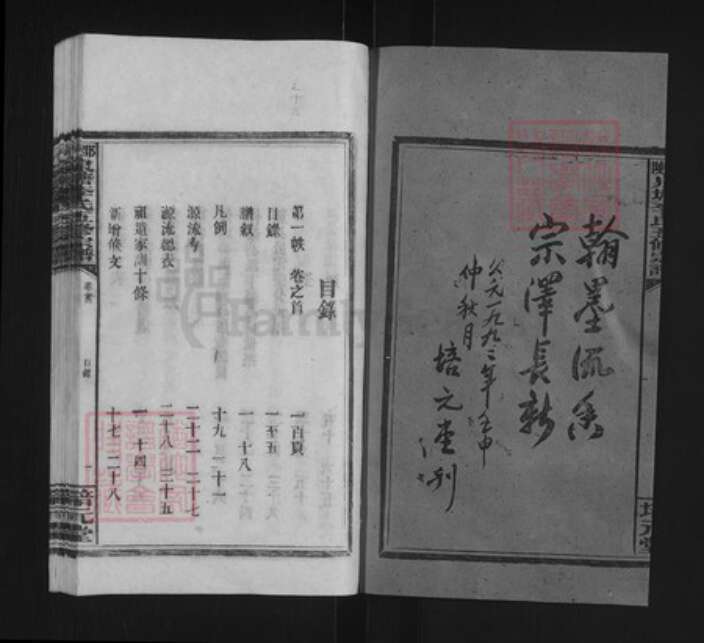 翰墨流香
宗澤長新
公元一九九二年壬申
仲秋月
培元堂刊
培元堂
目錄
第一帙 卷之首 一百頁
目錄 一至五
譜叙 一 十八
凡例 十九 二十一
源流考 二十二 二十七
源流總表 二十八 三十五
祖遺家訓十條 一 十四
新增條文 十七 二十八
卷首
目錄
一
培元堂